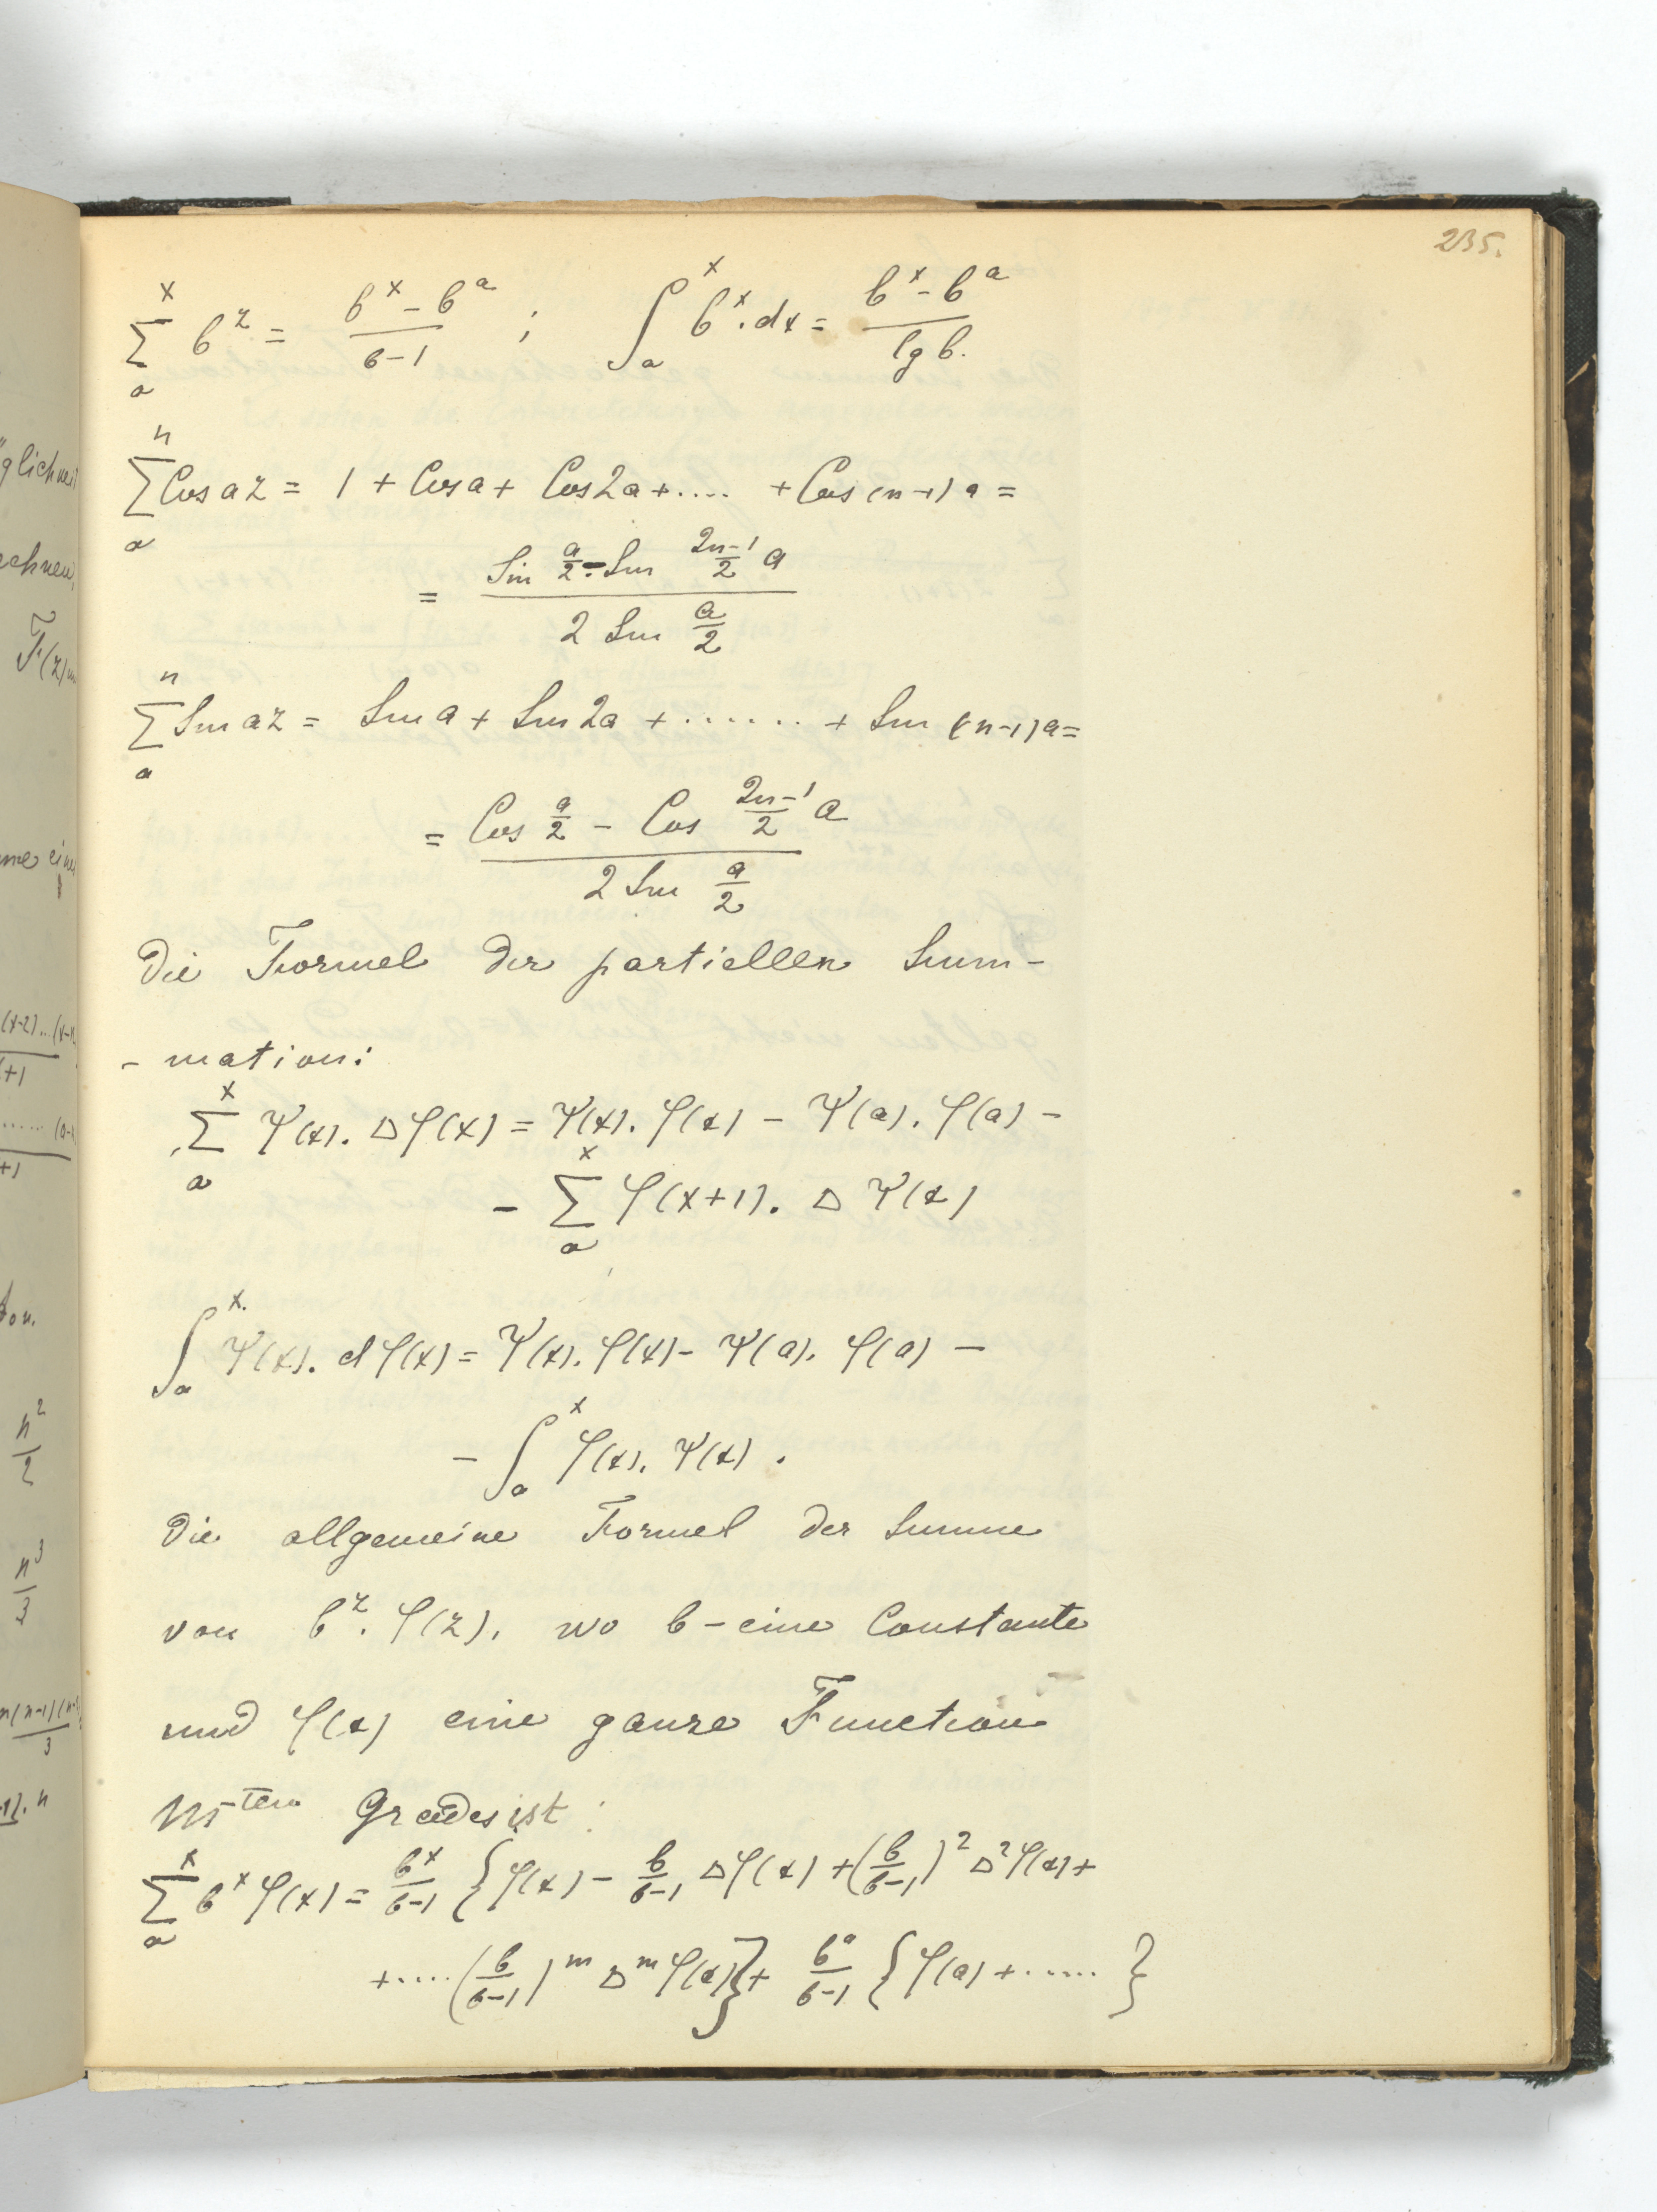 235.
$\sum_a^x b^z = \frac{b^x - b^a}{b-1}$ ; $\int_a^x b^x . dx = \frac{b^x - b^a}{lg b.}$
$\sum_a^n Cos az = 1 + Cos a + Cos 2a + .... + Cos (n-1) a =$
$= \frac{Sin \frac{a}{2} - Sin \frac{2n-1}{2} a}{2 Sin \frac{a}{2}}$
$\sum_a^n Sin az = Sin a + Sin 2a + ....... + Sin (n-1) a =$
$= \frac{Cos \frac{a}{2} - Cos \frac{2n-1}{2} a}{2 Sin \frac{a}{2}}$
Die Formel der partiellen Sum-
- mation:
$\sum_a^x \Psi(x) . \Delta \varphi(x) = \Psi(x) . \varphi(x) - \Psi(a) . \varphi(a) -$
$- \sum_a^x \varphi(x+1) . \Delta \Psi(x)$
$\int_a^x \Psi(x) . d \varphi(x) = \Psi(x) . \varphi(x) - \Psi(a) . \varphi(a) -$
$- \int_a^x \varphi(x) . \Psi(x) .$
Die allgemeine Formel der Summe
von $b^z . \varphi(z)$, wo b - eine Constante
und $\varphi(x)$ eine ganze Function
m-ten Grades ist :
$\sum_a^x b^x \varphi(x) = \frac{b^x}{b-1} \{ \varphi(x) - \frac{b}{b-1} \Delta \varphi(x) + (\frac{b}{b-1})^2 \Delta^2 \varphi(x) +$
$+ ..... (\frac{b}{b-1})^m \Delta^m \varphi(x) \} + \frac{b^a}{b-1} \{ \varphi(a) + ...... \}$